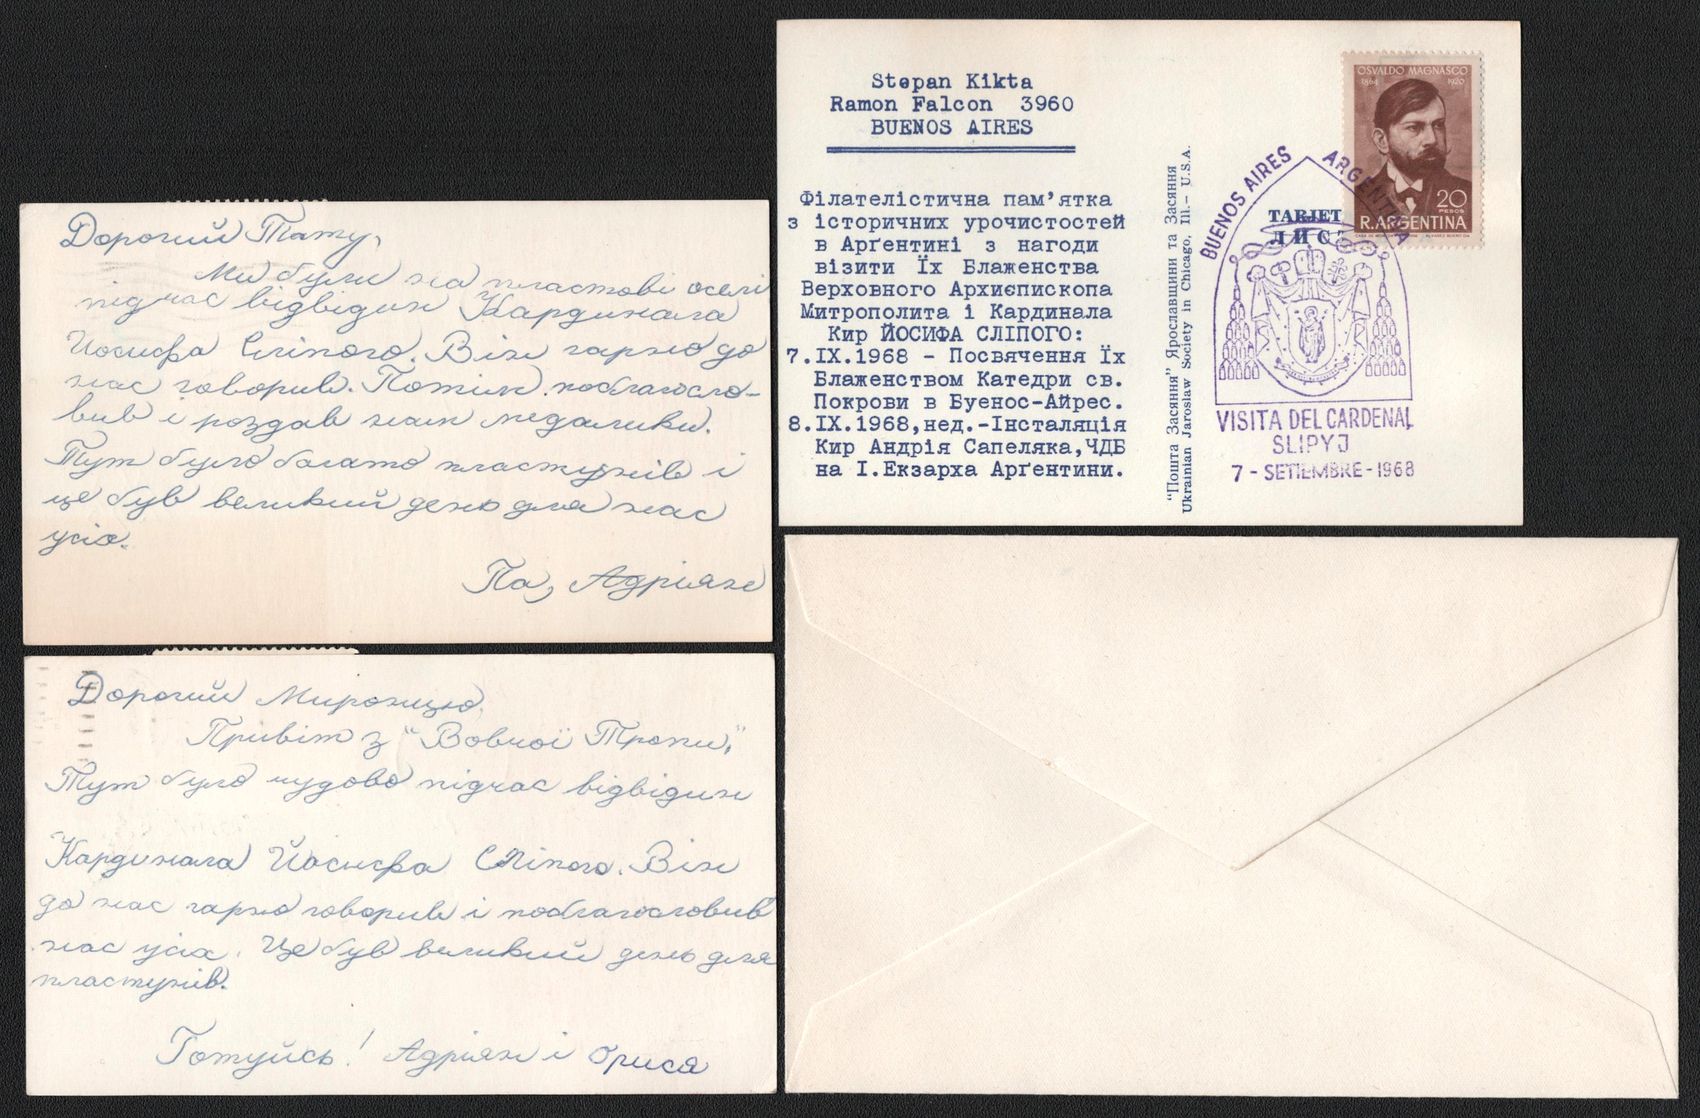 Дорогий Тату,
Ми були на пластові оселі
підчас відвидин Кардинала
Йосифа Сліпого. Він гарно до
нас говорив. Потім поблагосло-
вив і роздав нам медалики.
Тут було богато пластунів і
це був великий день для нас
усіх.
Па, Адріян
Дорогий Миронцю,
Привіт з "Вовчої Тропи,"
Тут було чудово підчас відвідин
Кардинала Йосифа Сліпого. Він
до нас гарно говорив і поблагословив
нас усіх. Це був великий день для
пластунів.
Готуйсь! Адріян і Орися
Stepan Kikta
Ramon Falcon 3960
BUENOS AIRES
Філателістична пам'ятка
з історичних урочистостей
в Арґентині з нагоди
візити Їх Блаженства
Верховного Архиєпископа
Митрополита і Кардинала
Кир ЙОСИФА СЛІПОГО:
7.IX.1968 - Посвячення Їх
Блаженством Катедри св.
Покрови в Буенос-Айрес.
8.IX.1968,нед.-Інсталяція
Кир Андрія Сапеляка,ЧДБ
на І.Екзарха Арґентини.
"Пошта Засяння" Ярославщини та Засяння
Ukrainian Jaroslaw Society in Chicago, Ill.- U.S.A.
OSVALDO MAGNASCO
1864 1920
20
PESOS
R.ARGENTINA
TARJET
ЛИС
BUENOS AIRES ARGENTINA
VISITA DEL CARDENAL
SLIPYJ
7 - SETIEMBRE - 1968